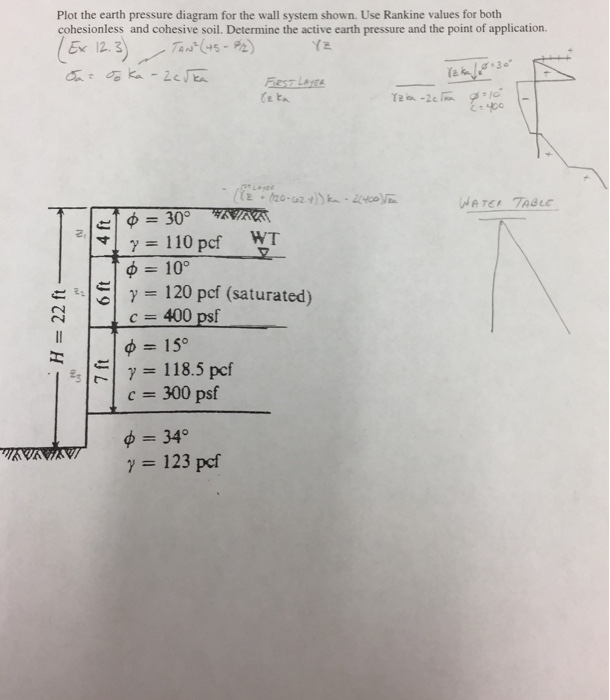 Plot the earth pressure diagram for the wall system shown. Use Rankine values for both
cohesionless and cohesive soil. Determine the active earth pressure and the point of application.
(Ex 12.3) TAN²(45 - φ/2) γz
σa = σo Ka - 2c√Ka
FIRST LAYER
γz Ka
γz Ka φ=30°
γz Ka - 2c√Ka φ=10°
c=400
2(400)√Ka
WATER TABLE
H = 22 ft
z1
4 ft
φ = 30°
γ = 110 pcf WT
z2
6 ft
φ = 10°
γ = 120 pcf (saturated)
c = 400 psf
z3
7 ft
φ = 15°
γ = 118.5 pcf
c = 300 psf
φ = 34°
γ = 123 pcf